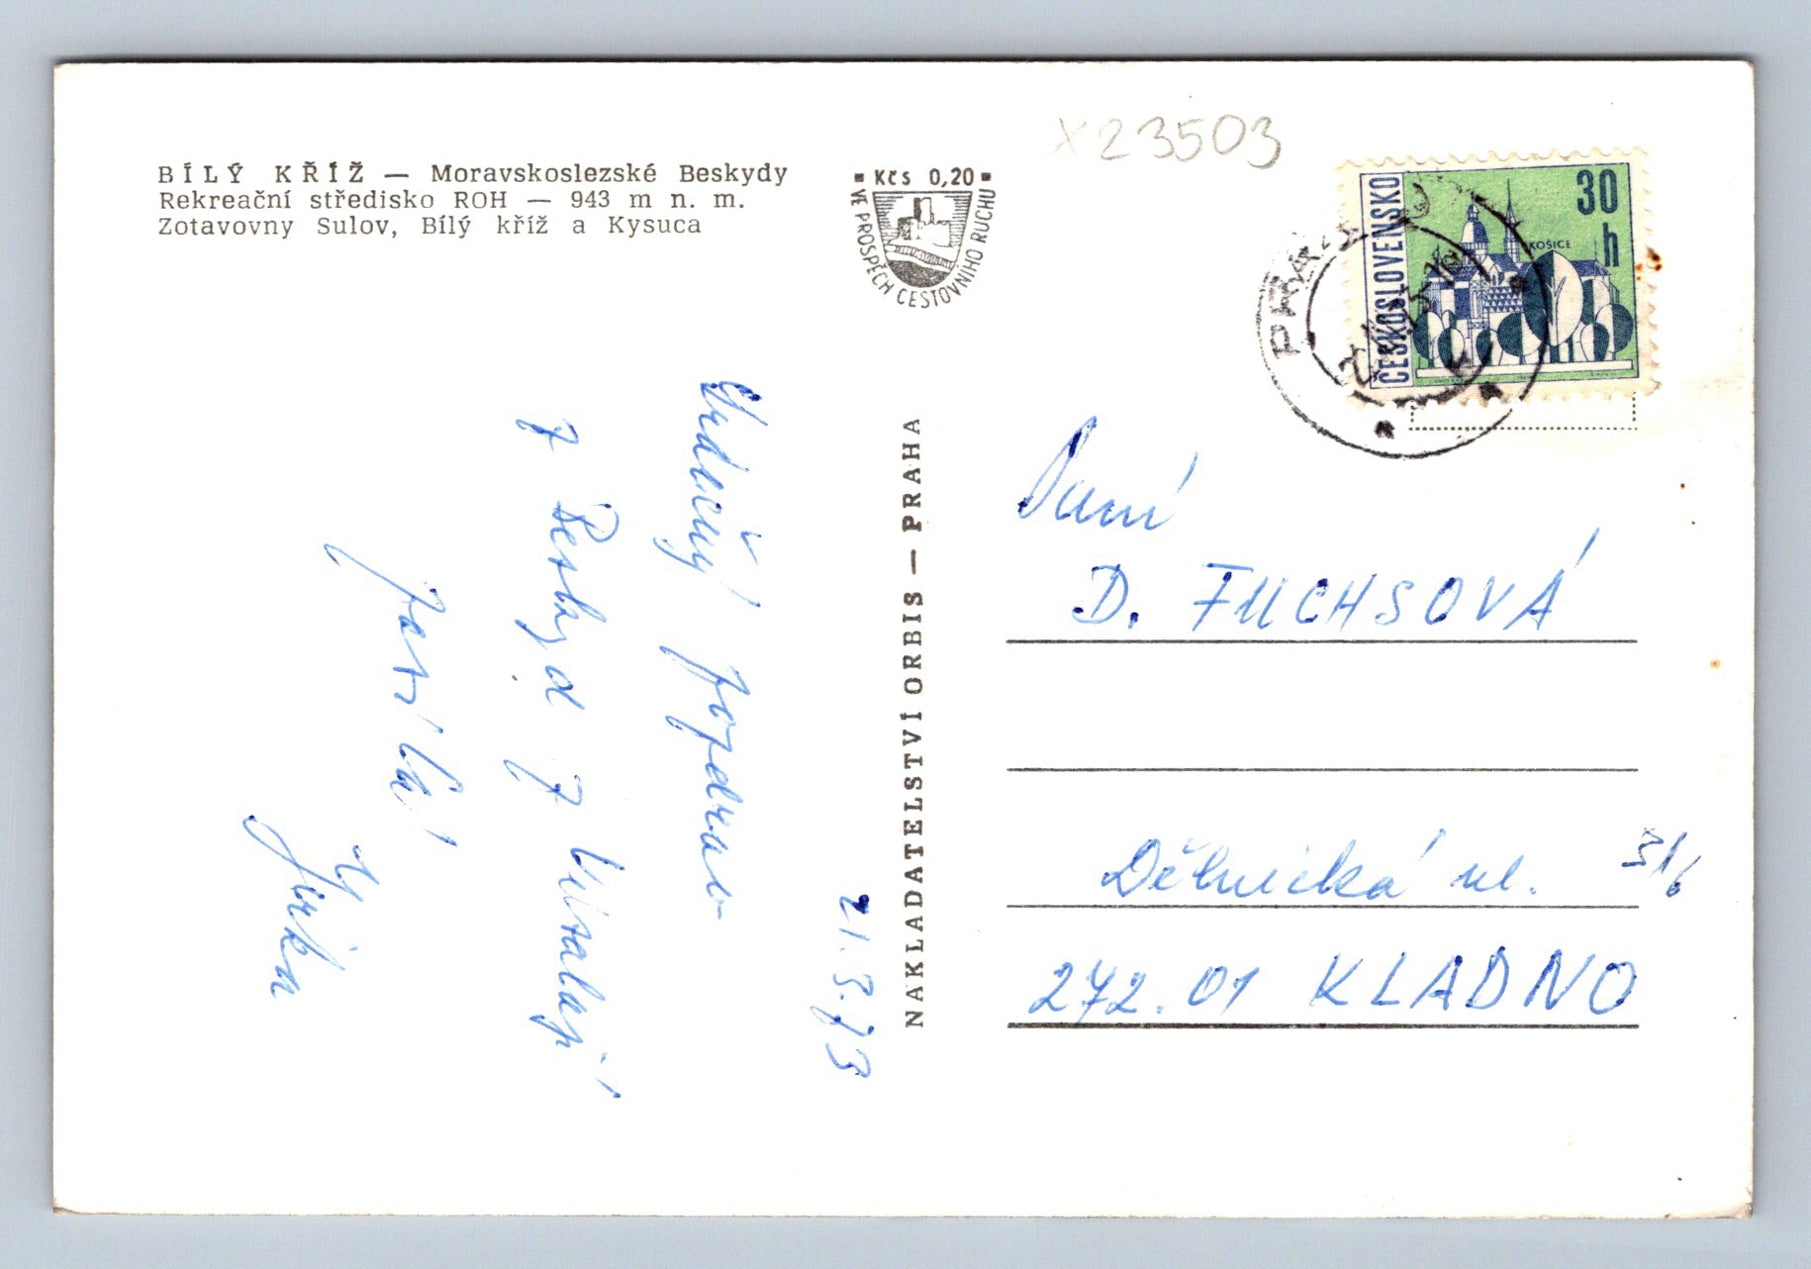 BÍLÝ KŘÍŽ — Moravskoslezské Beskydy
Rekreační středisko ROH — 943 m n. m.
Zotavovny Sulov, Bílý kříž a Kysuca
Kčs 0,20
VE PROSPĚCH CESTOVNÍHO RUCHU
X23503
ČESKOSLOVENSKO
30
h
KOŠICE
PRAHA
21.3.73
Srdečný pozdrav
z Beskyd z
NAKLADATELSTVÍ ORBIS — PRAHA
Paní
D. FUCHSOVÁ
Dělnická ul.
272.01 KLADNO